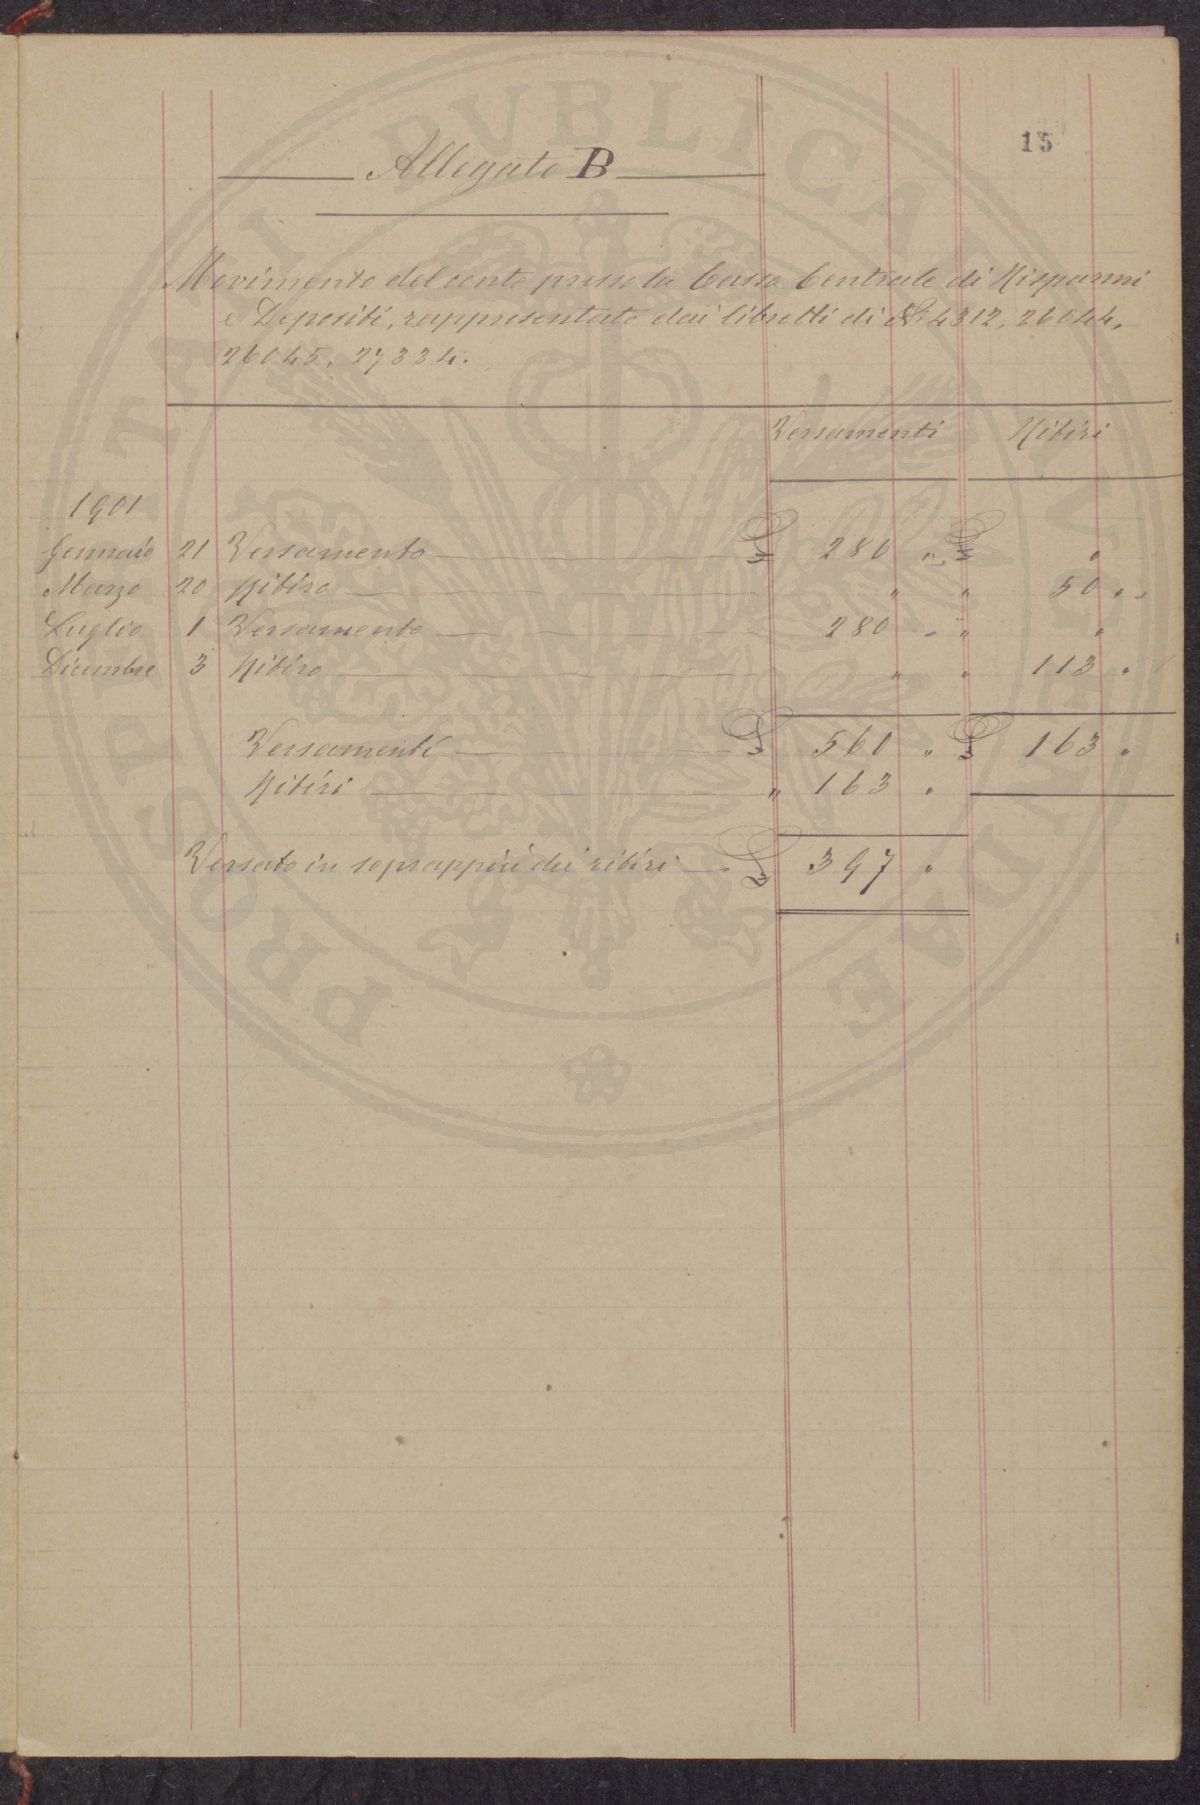 15
Allegato B
Movimento del conto presso la Cassa Centrale di Risparmi
e Depositi, rappresentato dai libretti di N. 4312, 26044,
26045, 27334.
Versamenti Ritiri
1901
Gennaio 21 Versamento £ 280 " £ "
Marzo 20 Ritiro " " 50 "
Luglio 1 Versamento 280 " "
Dicembre 3 Ritiro " " 113 "
Versamenti £ 560 " £ 163 "
Ritiri " 163 "
Versato in soprappiù dei ritiri £ 397 "
PROSPERITATI PVBLICAE AVGENDAE